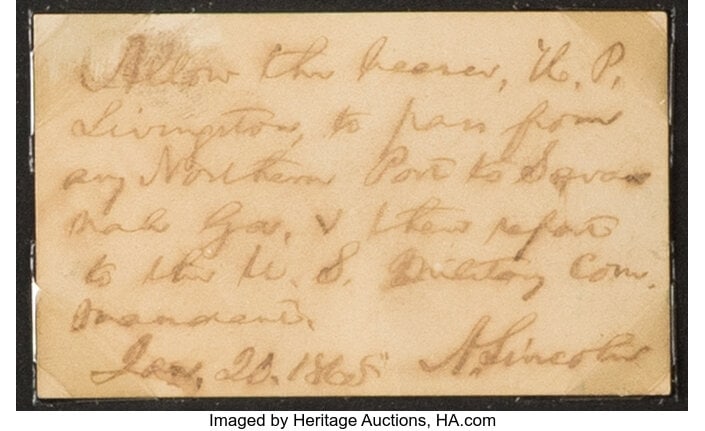 Allow the bearer, H. P.
Livingston, to pass from
any Northern Port to Savan
nah Ga. & then report
to the U. S. Military Com.
mandant.
Jan. 20. 1865 A. Lincoln
Imaged by Heritage Auctions, HA.com